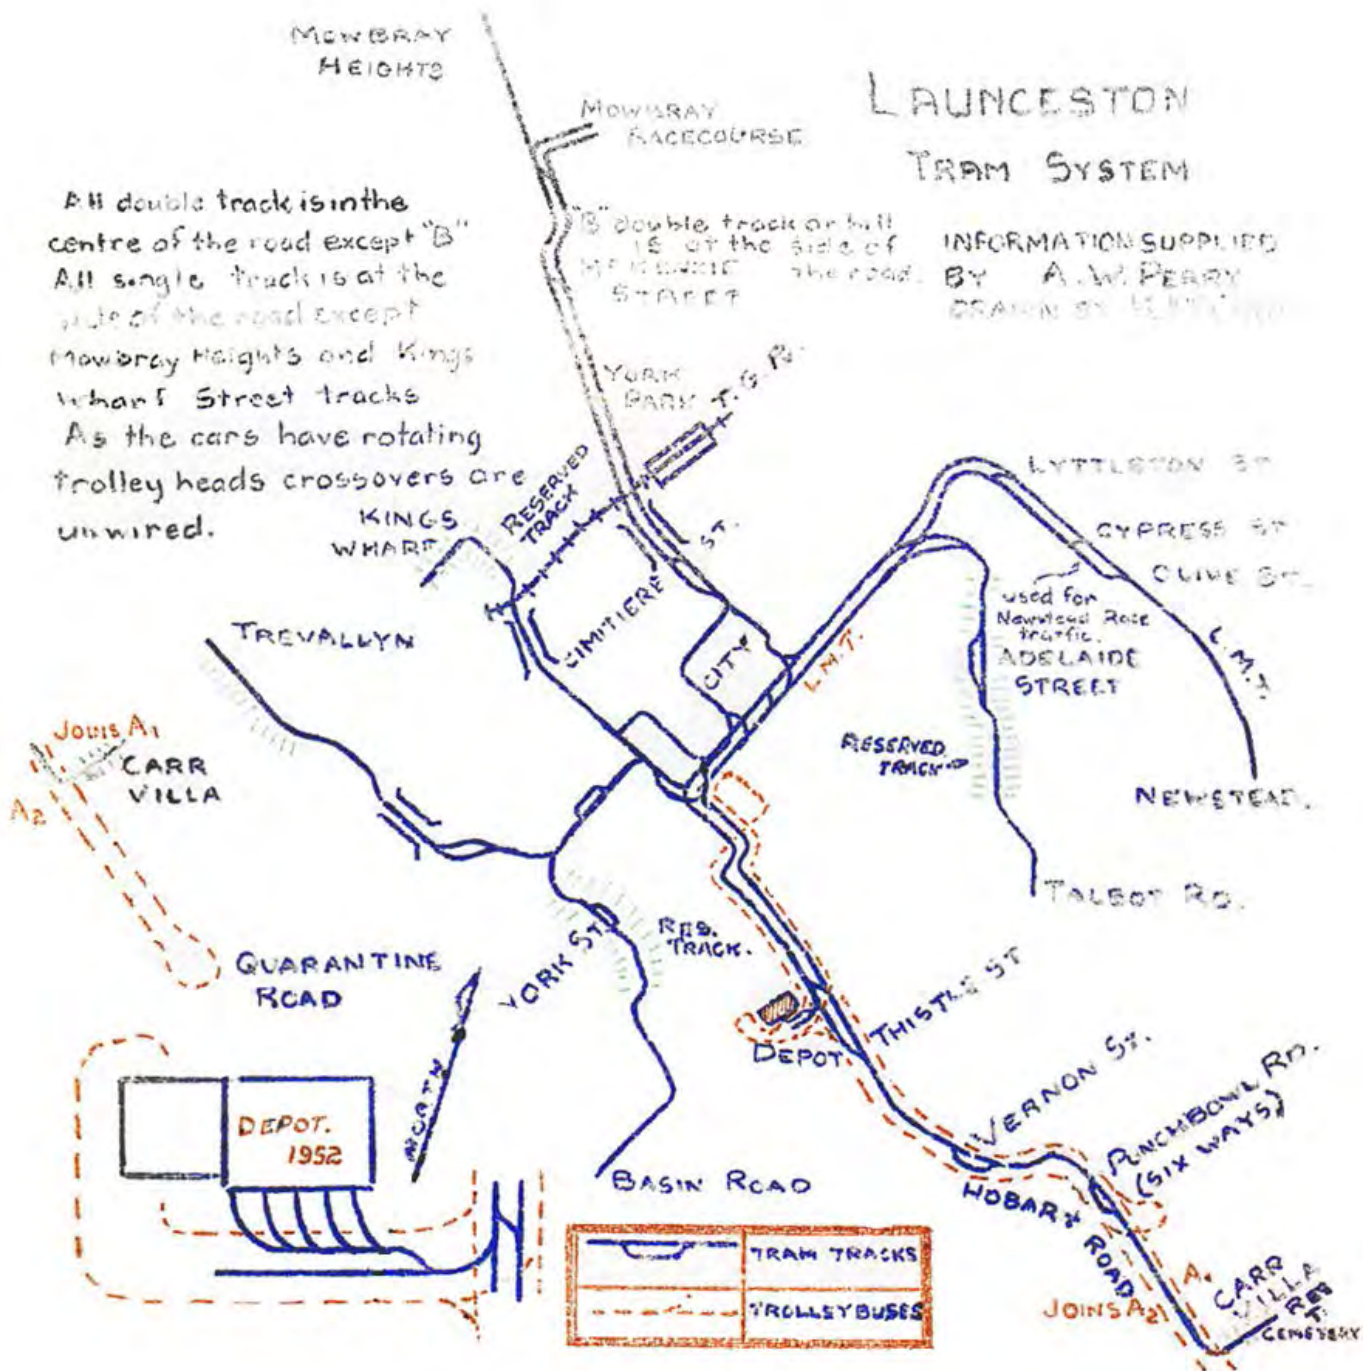 MOWBRAY
HEIGHTS
MOWBRAY
RACECOURSE
LAUNCESTON
TRAM SYSTEM
INFORMATION SUPPLIED
BY A.W. PERRY
DRAWN BY
All double track is in the
centre of the road except "B"
All single track is at the
side of the road except
Mowbray Heights and Kings
Wharf Street tracks
As the cars have rotating
trolley heads crossovers are
unwired.
"B" double track on hill
is at the side of
the road.
MCKENZIE
STREET
YORK
PARK
T.G.R.
RESERVED
TRACK
KINGS
WHARF
CIMITIERE
ST.
CITY
L.M.T.
LYTTLETON ST
CYPRESS ST
OLIVE ST.
used for
Newstead Race
traffic.
L.M.T.
ADELAIDE
STREET
RESERVED
TRACK
NEWSTEAD.
TALBOT RD.
TREVALLYN
JOINS A1
CARR
VILLA
A2
QUARANTINE
ROAD
YORK ST
RES.
TRACK.
NORTH
DEPOT
THISTLE ST
VERNON ST.
PUNCHBOWL RD.
(SIX WAYS)
HOBART
ROAD
BASIN ROAD
DEPOT.
1952
TRAM TRACKS
TROLLEYBUSES
JOINS A2
A1
CARR
VILLA
RES
T.
CEMETERY